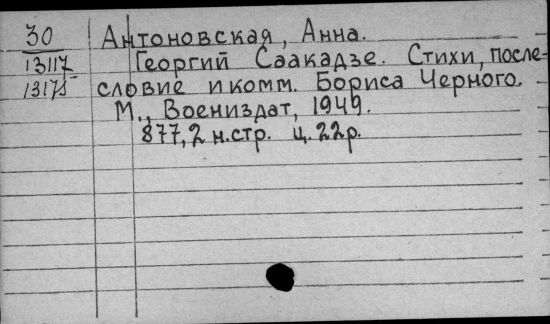 30 Антоновская, Анна.
13117 Георгий Саакадзе. Стихи, после-
13175 словие и комм. Бориса Черного.
М., Воениздат, 1949.
877,2 н.стр. ц. 22р.